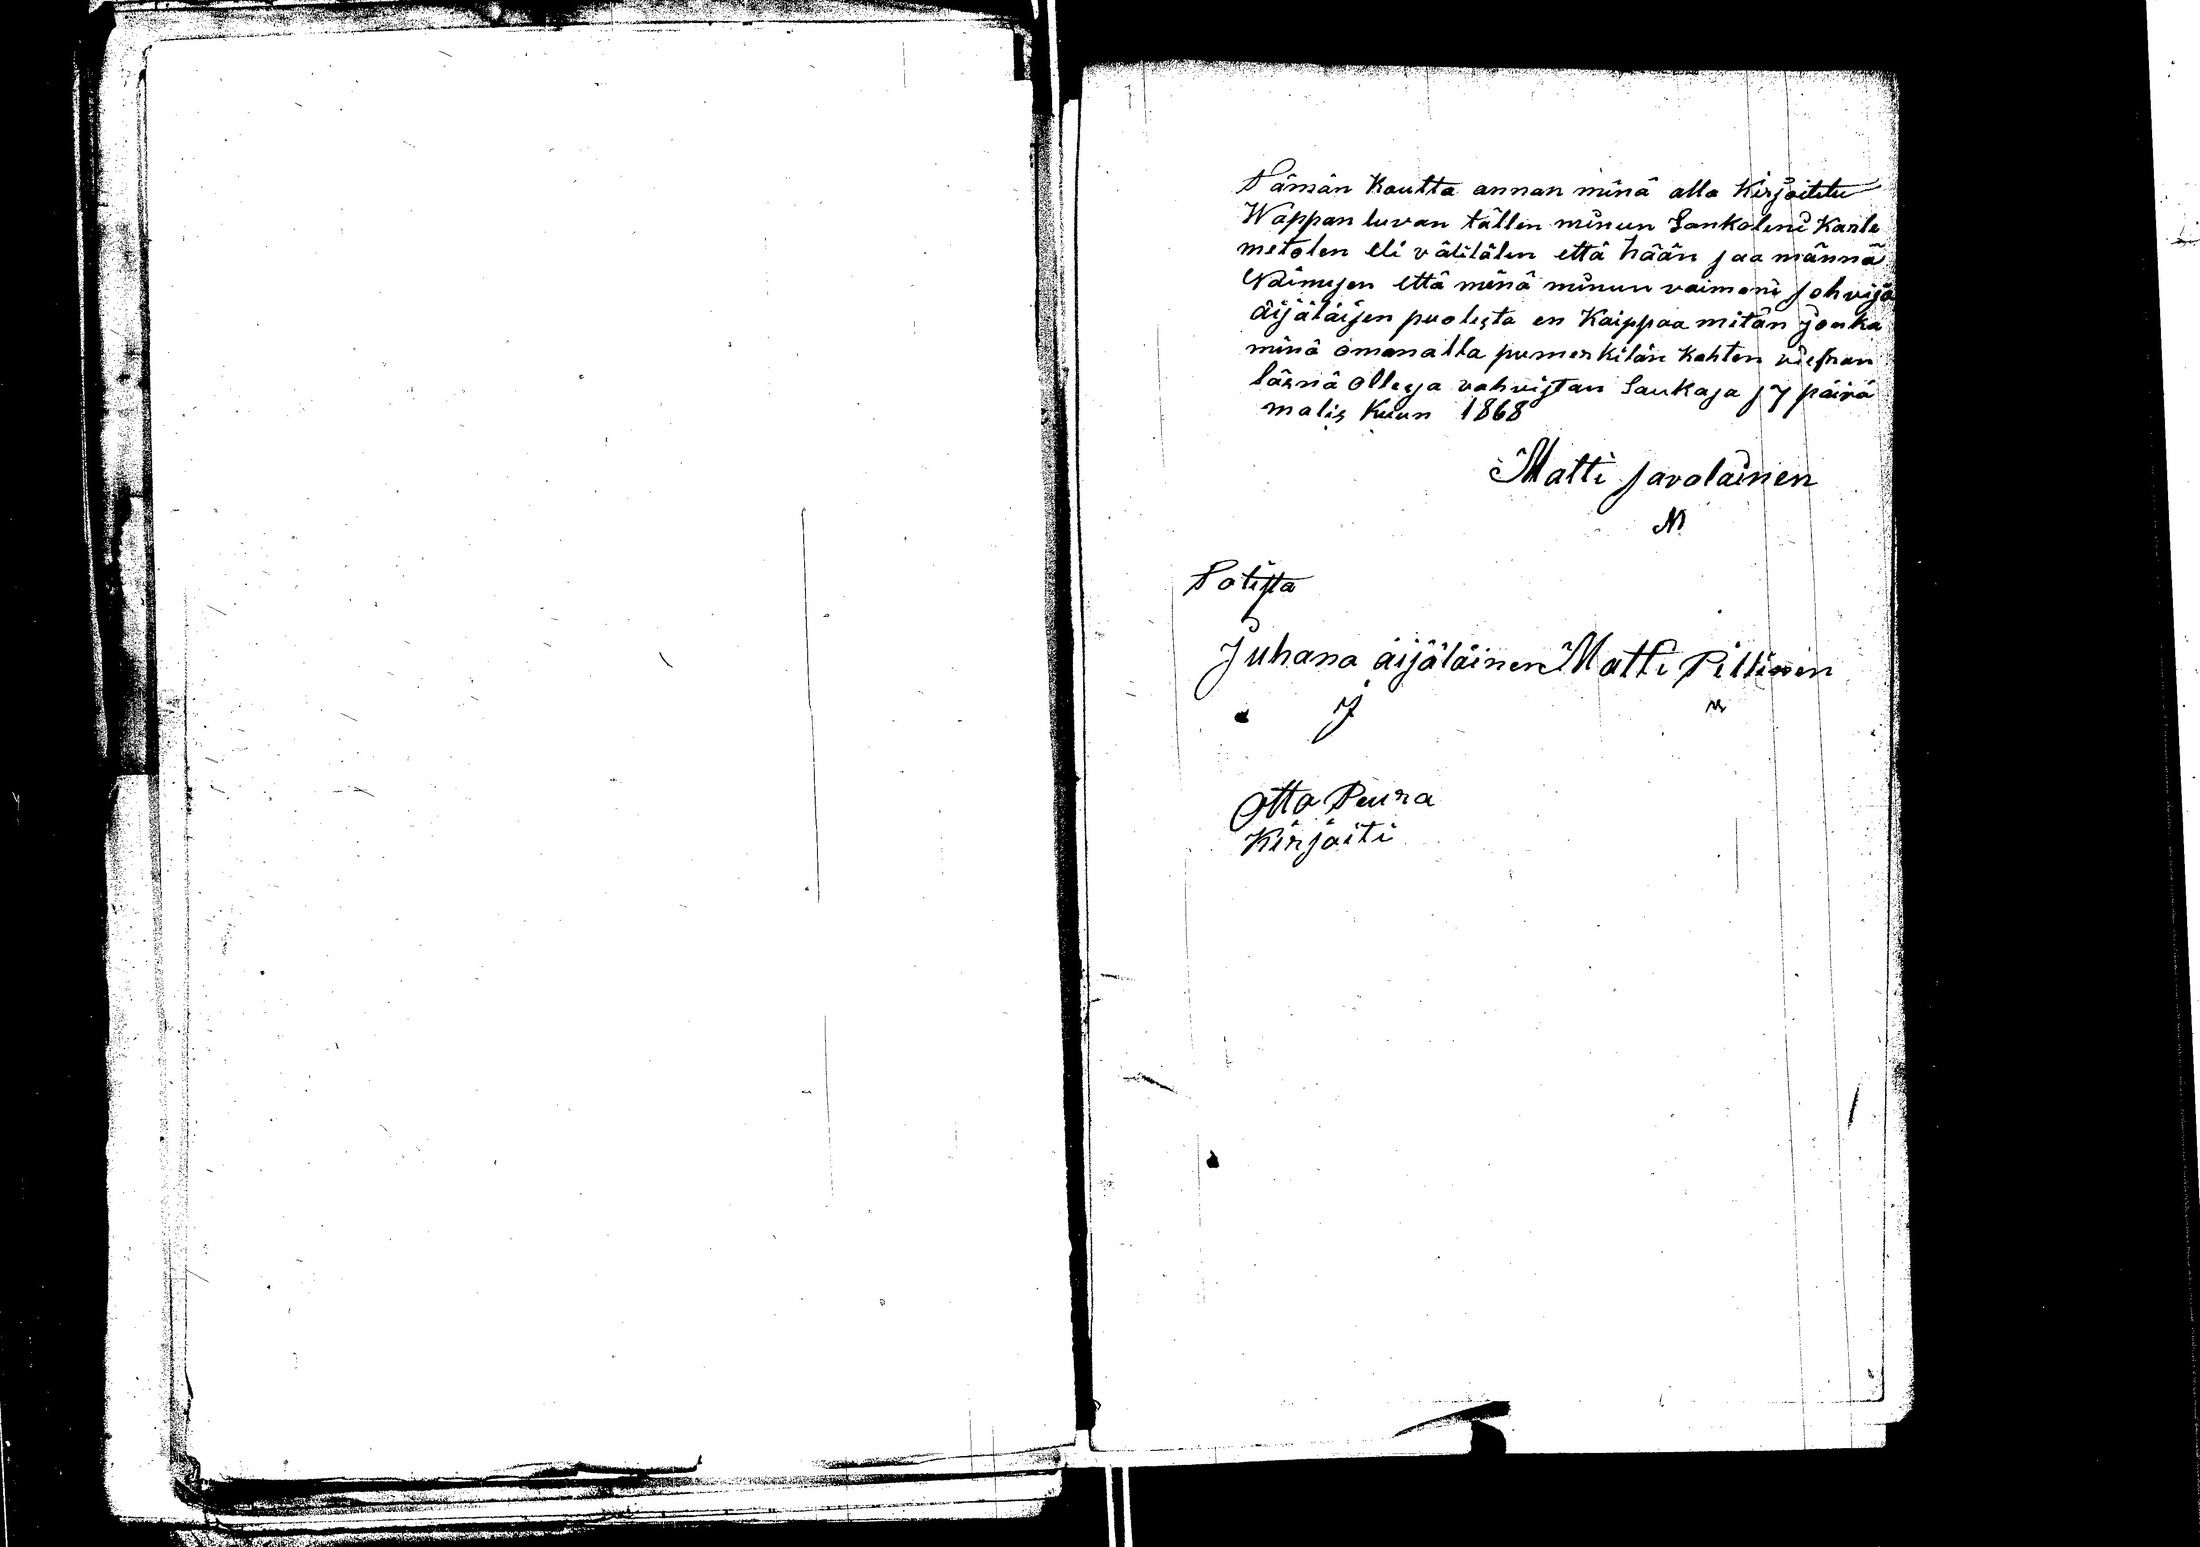 Tämän Kautta annan minä alla Kirjoitetu
Wappan luvan tällen minun Lankoleni Karle
metolen eli välilälen että hään saa männä
Naimisen että minä minun vaimoni sohvija
äijäläisen puolesta en Kaippaa mitän jonka
minä omanalla pumerkilän kahten viesnan
läsnä ollesa vahvistan Laukasa 17 päivä
malis Kuun 1868
Matti Savolainen
M
Totista
Juhana äijäläinen Matti Pittinen
J M
Otto Peura
Kirjoiti